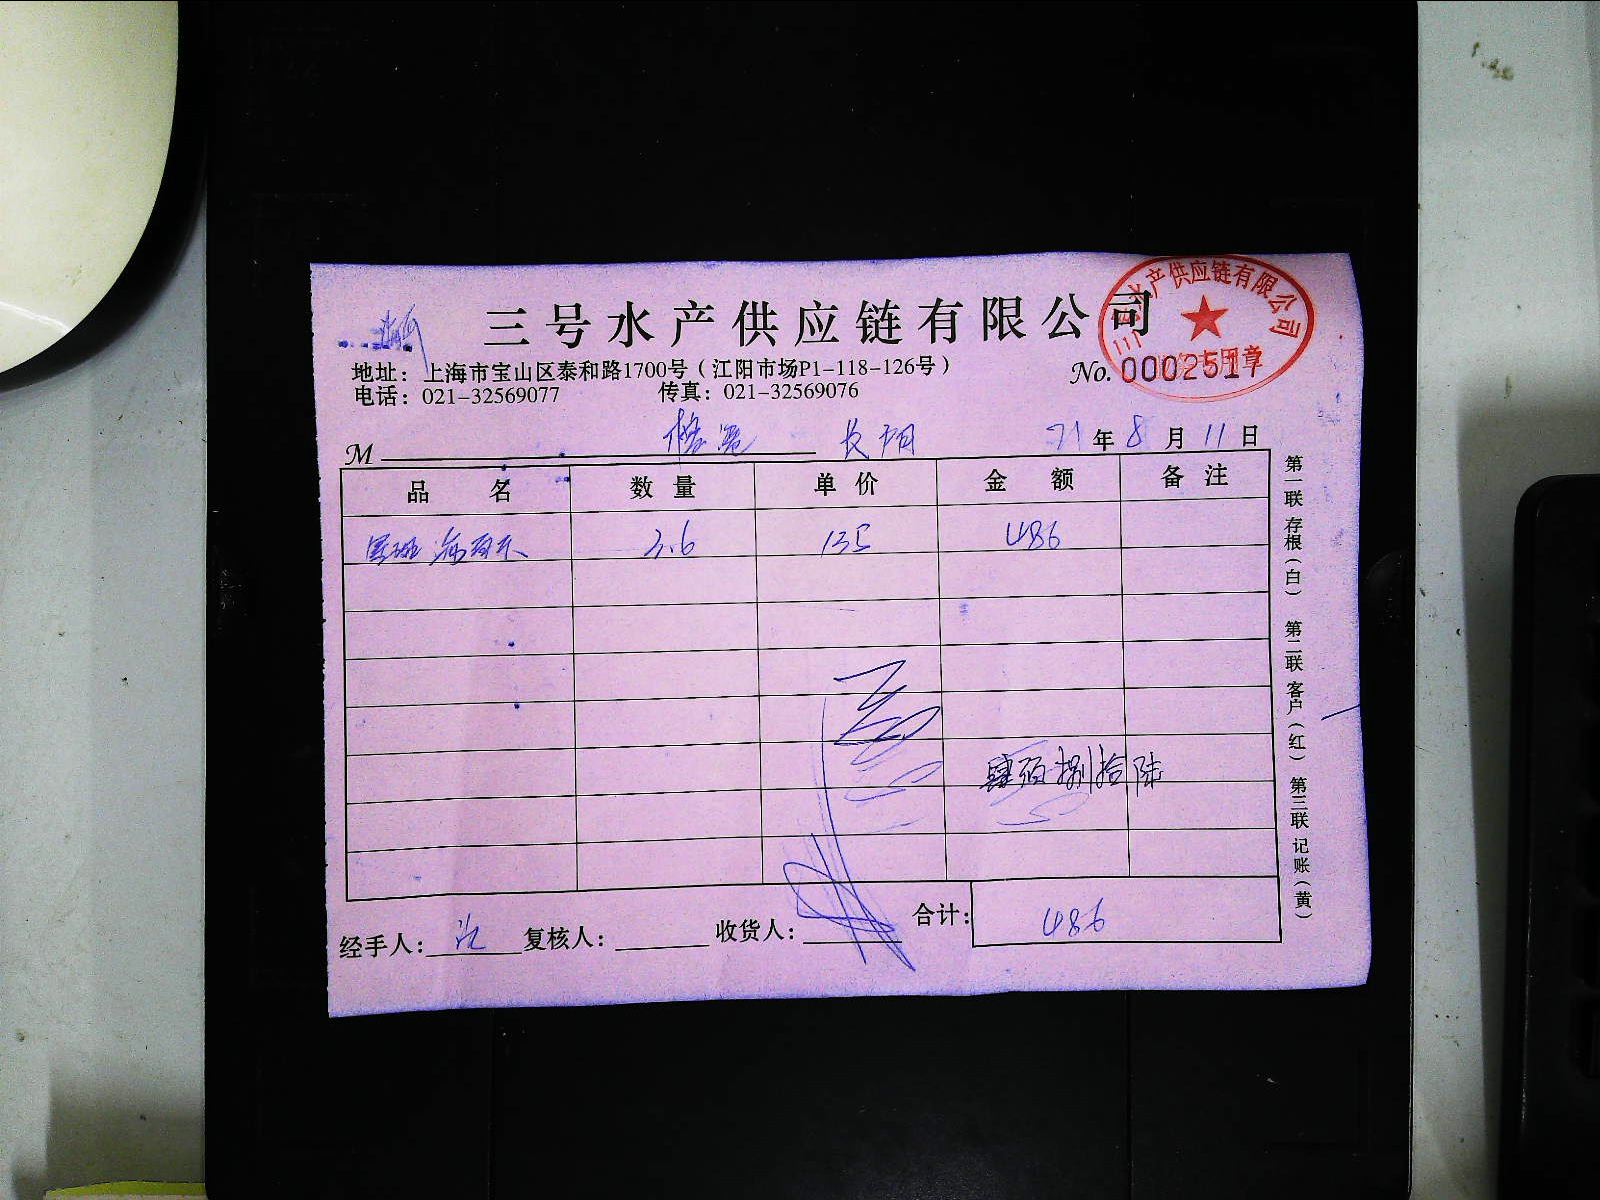 三号水产供应链有限公司
三号水产供应链有限公司
地址：上海市宝山区泰和路1700号（江阳市场P1-118-126号）
电话：021-32569077 传真：021-32569076
No. 000251
M 长阳 21年8月11日
品名 数量 单价 金额 备注
3.6 135 486
肆佰捌拾陆
经手人： 复核人： 收货人： 合计： 486
第一联 存根（白） 第二联 客户（红） 第三联 记账（黄）